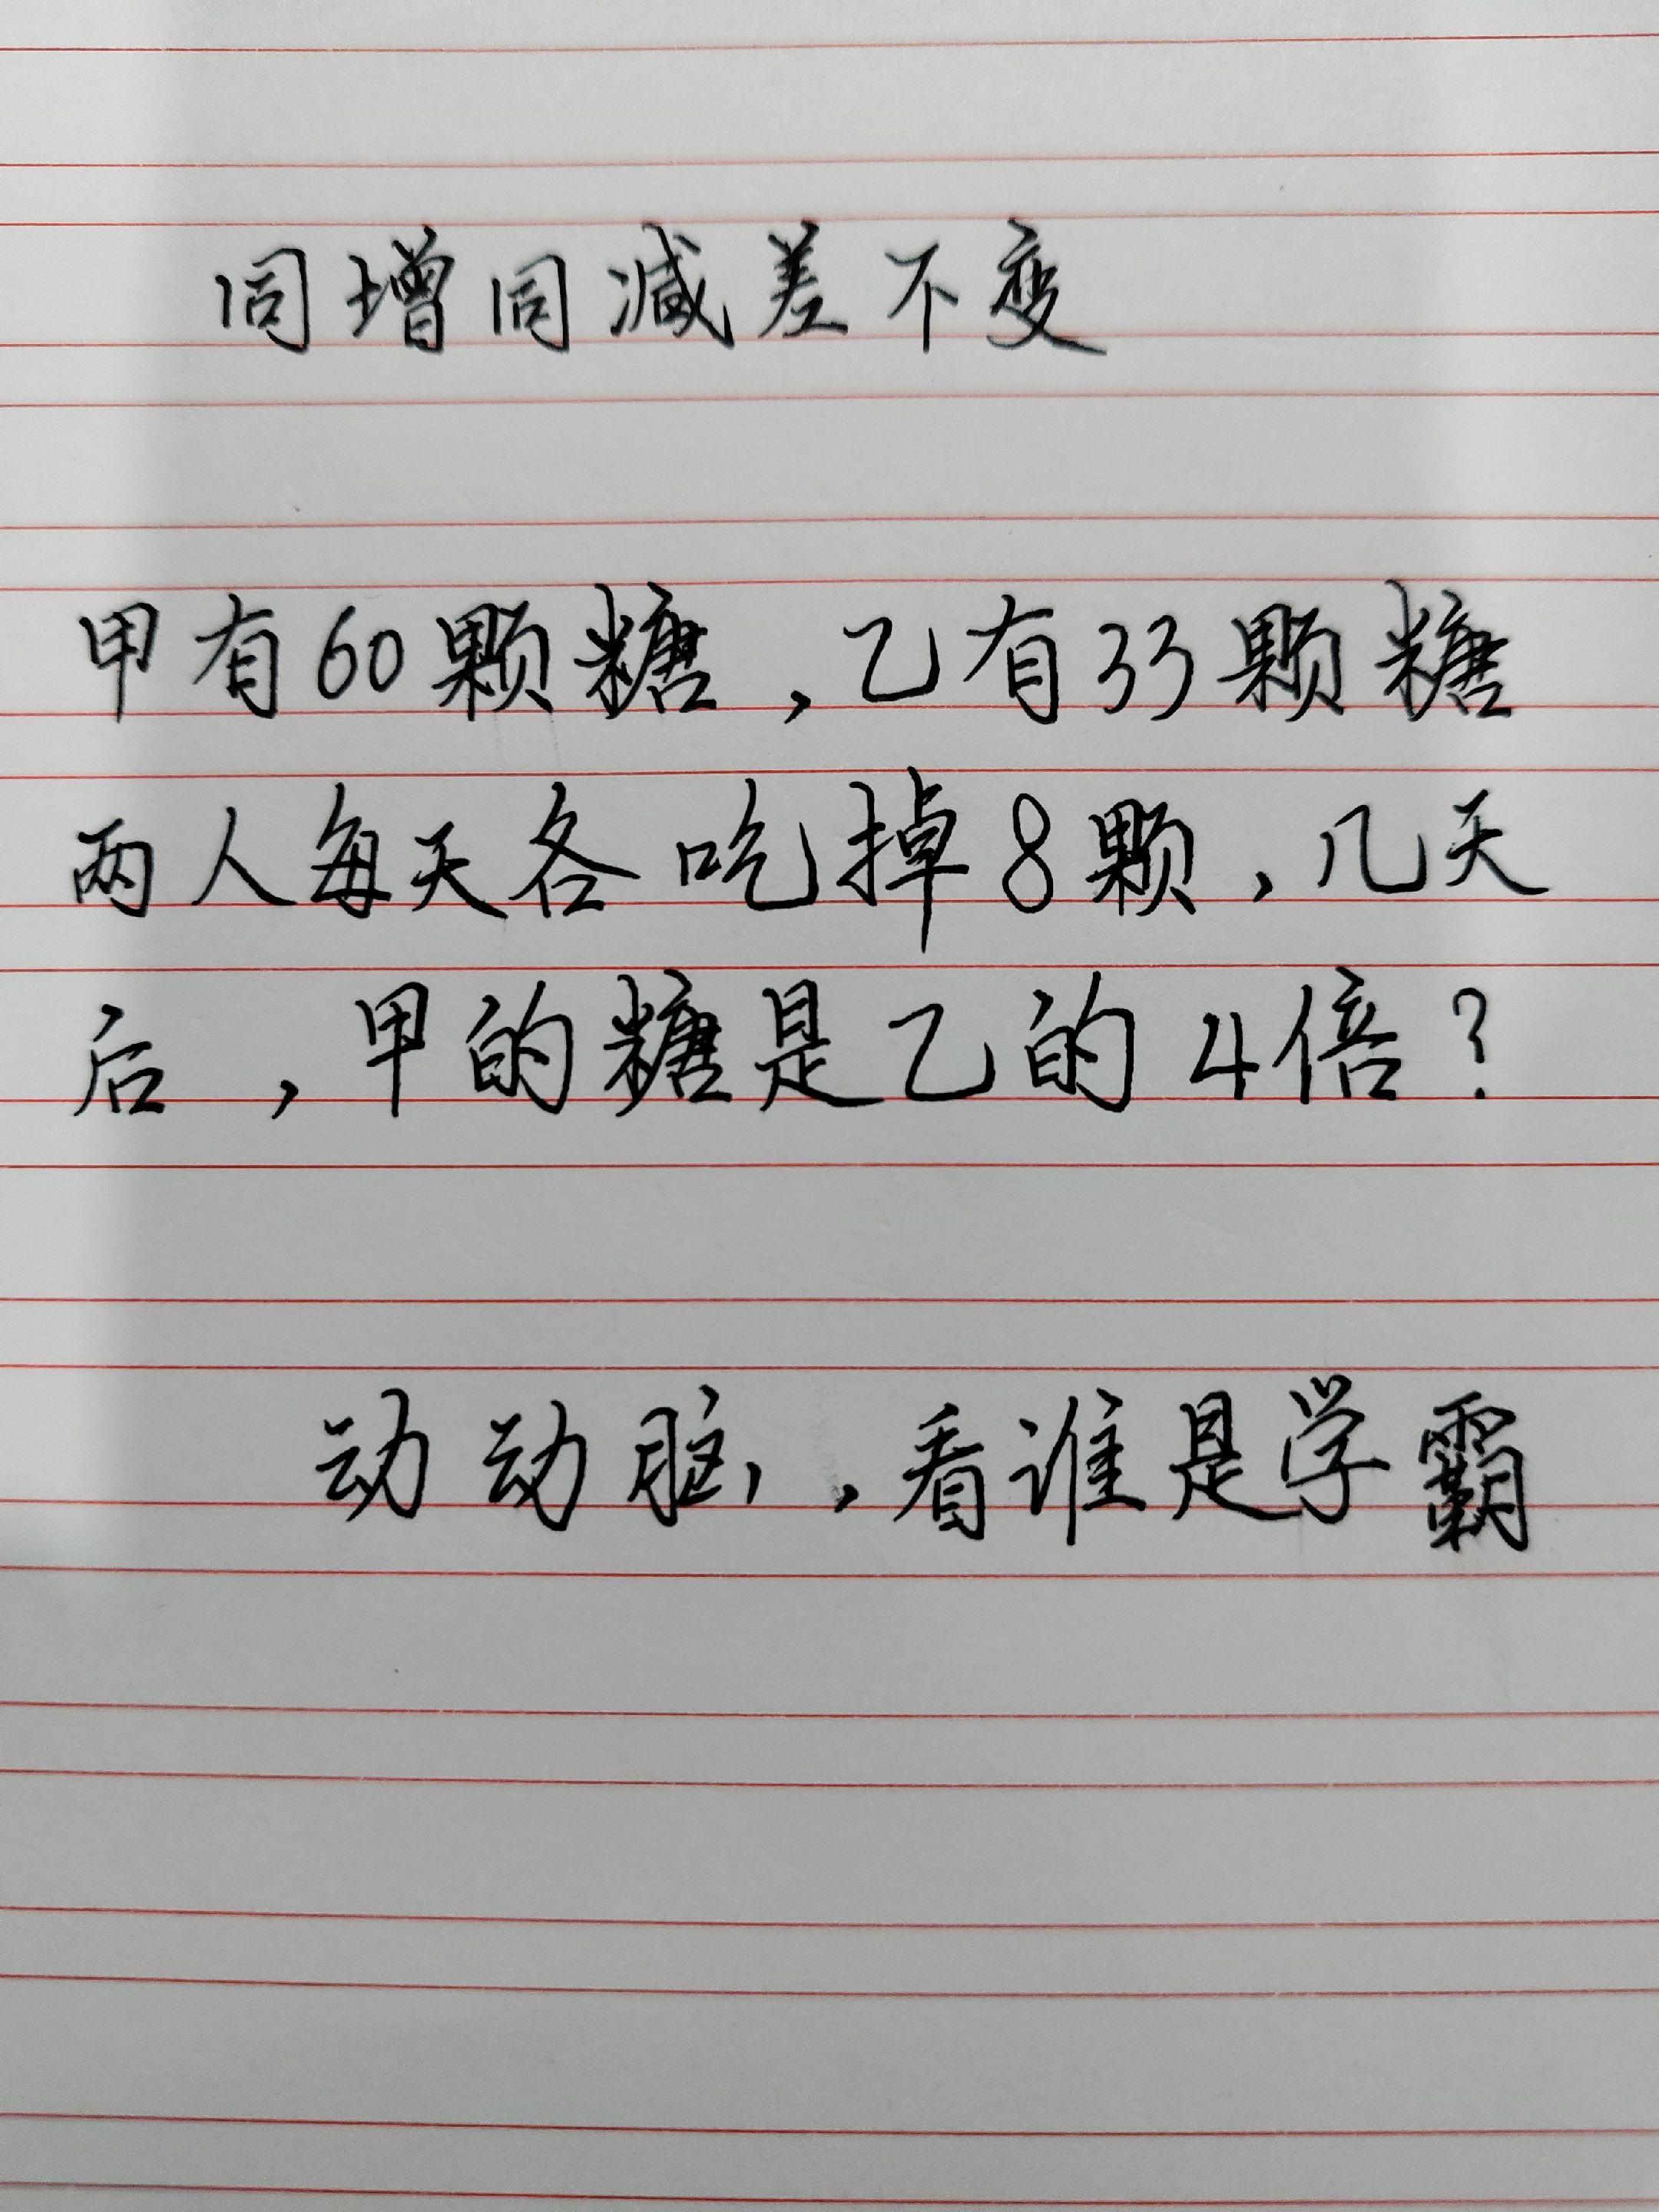 同增同减差不变
甲有60颗糖,乙有33颗糖
两人每天各吃掉8颗,几天
后,甲的糖是乙的4倍?
动动脑,看谁是学霸